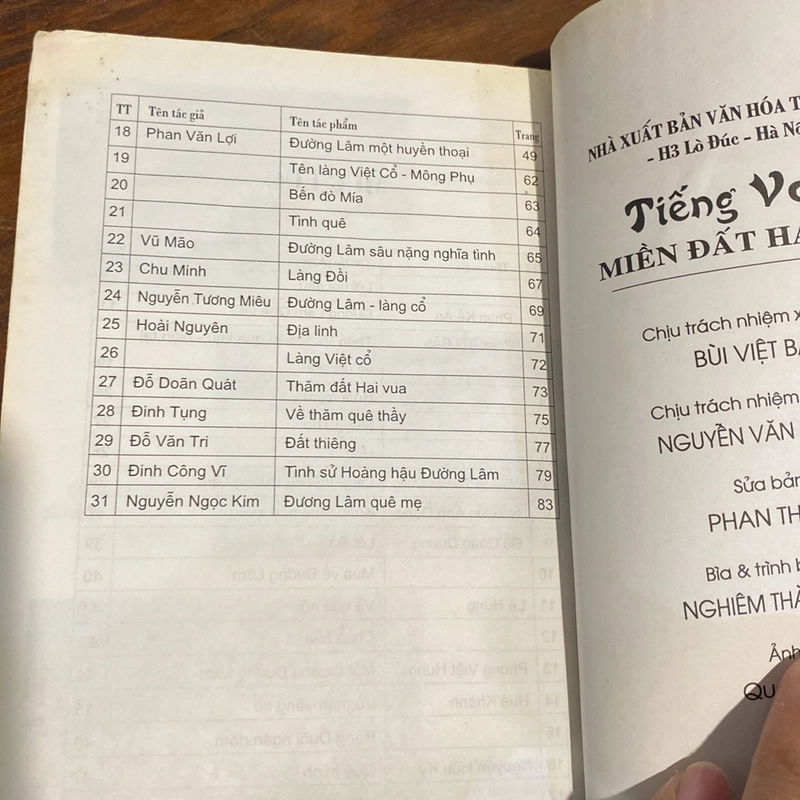 TT Tên tác giả Tên tác phẩm Trang
18 Phan Văn Lợi Đường Lâm một huyền thoại 49
19 Tên làng Việt Cổ - Mông Phụ 62
20 Bến đò Mía 63
21 Tình quê 64
22 Vũ Mão Đường Lâm sâu nặng nghĩa tình 65
23 Chu Minh Làng Đồi 67
24 Nguyễn Tương Miêu Đường Lâm - làng cổ 69
25 Hoài Nguyên Địa linh 71
26 Làng Việt cổ 72
27 Đỗ Doãn Quát Thăm đất Hai vua 73
28 Đinh Tụng Về thăm quê thầy 75
29 Đỗ Văn Tri Đất thiêng 77
30 Đinh Công Vĩ Tình sử Hoàng hậu Đường Lâm 79
31 Nguyễn Ngọc Kim Đương Lâm quê mẹ 83
NHÀ XUẤT BẢN VĂN HÓA
- H3 Lò Đúc - Hà
Tiếng
MIỀN ĐẤT
Chịu trách nhiệm
BÙI VIỆT
Chịu trách nhiệm
NGUYỄN VĂN
Sửa bản
PHAN
Bìa & trình
NGHIÊM
Ảnh